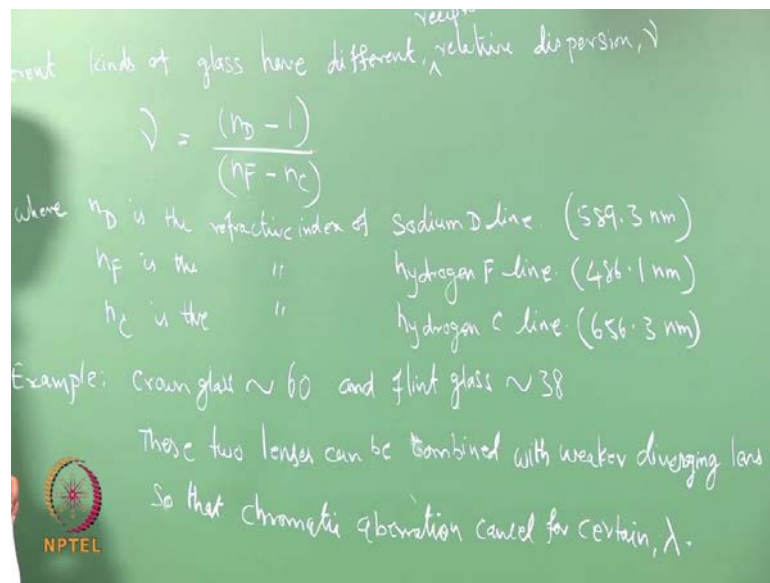 recip
erent kinds of glass have different, ^ relative dispersion, ν
ν = (nD - 1) / (nF - nC)
where nD is the refractive index of Sodium D line. (589.3 nm)
nF is the " hydrogen F line. (486.1 nm)
nC is the " hydrogen C line. (656.3 nm)
Example: Crown glass ~ 60 and flint glass ~ 38
These two lenses can be combined with weaker diverging lens
So that chromatic aberration cancel for certain, λ.
NPTEL